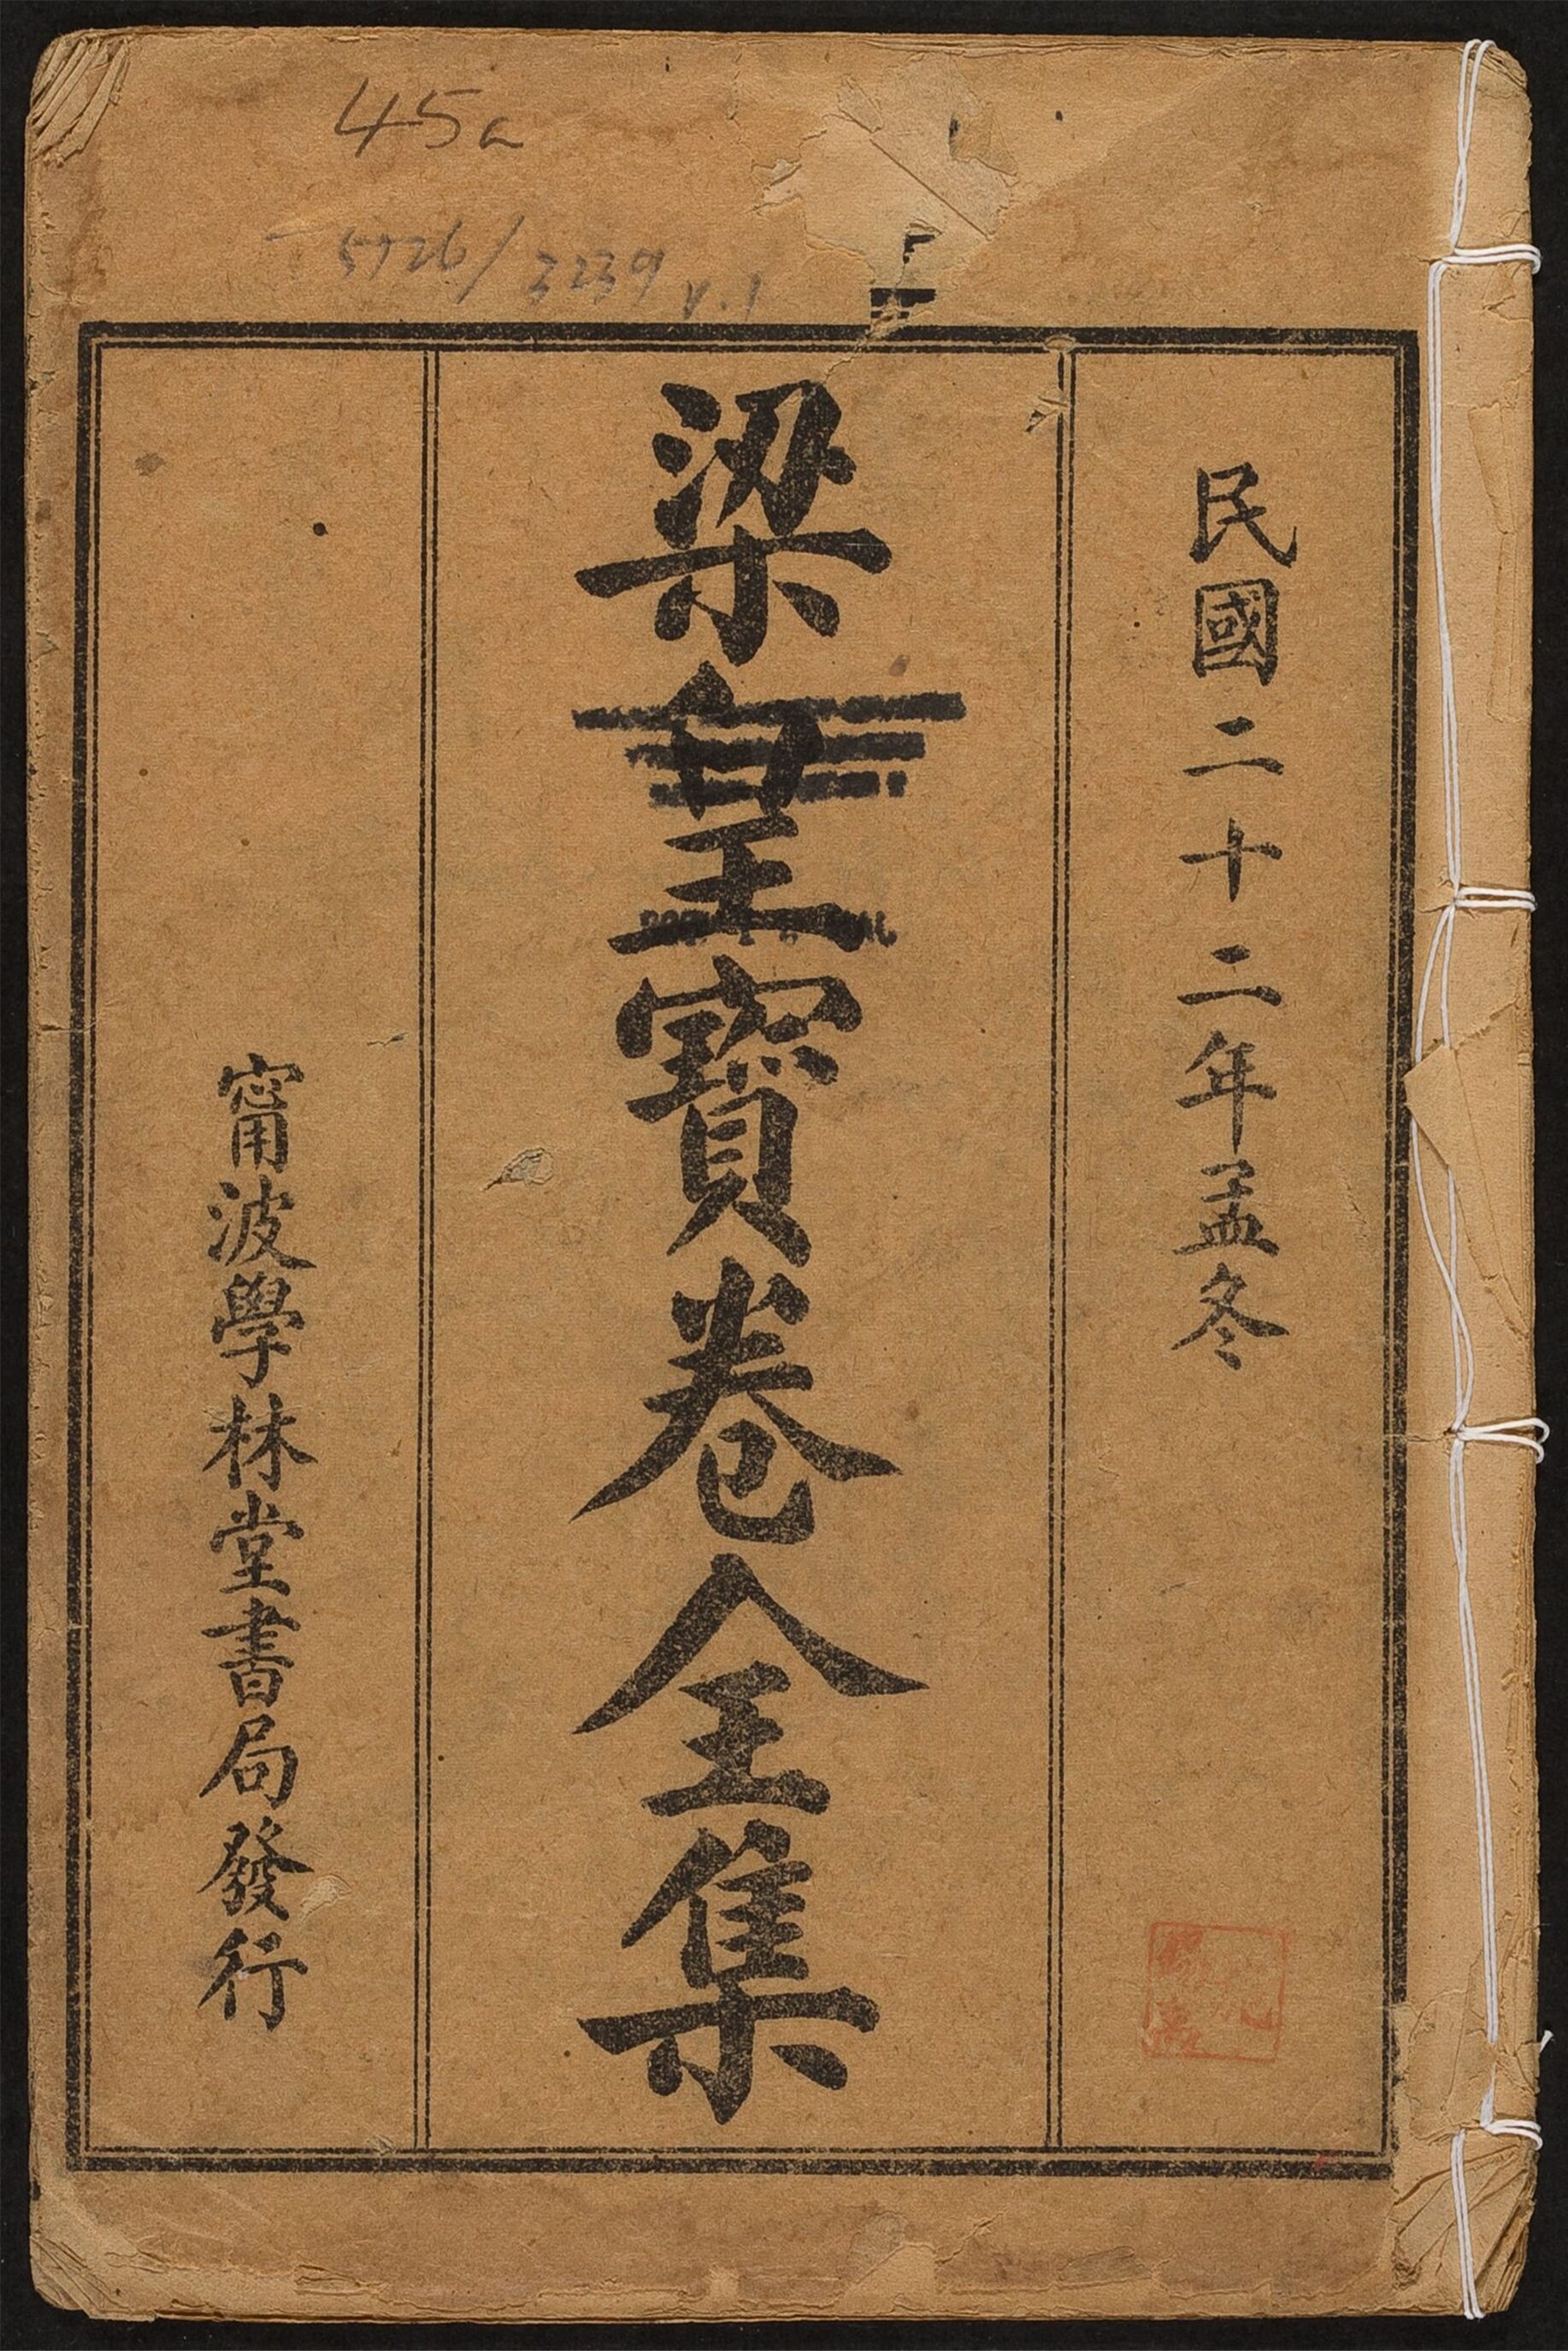 45a
5726/3239 v.1
民國二十二年孟冬
梁皇寶卷全集
甯波學林堂書局發行